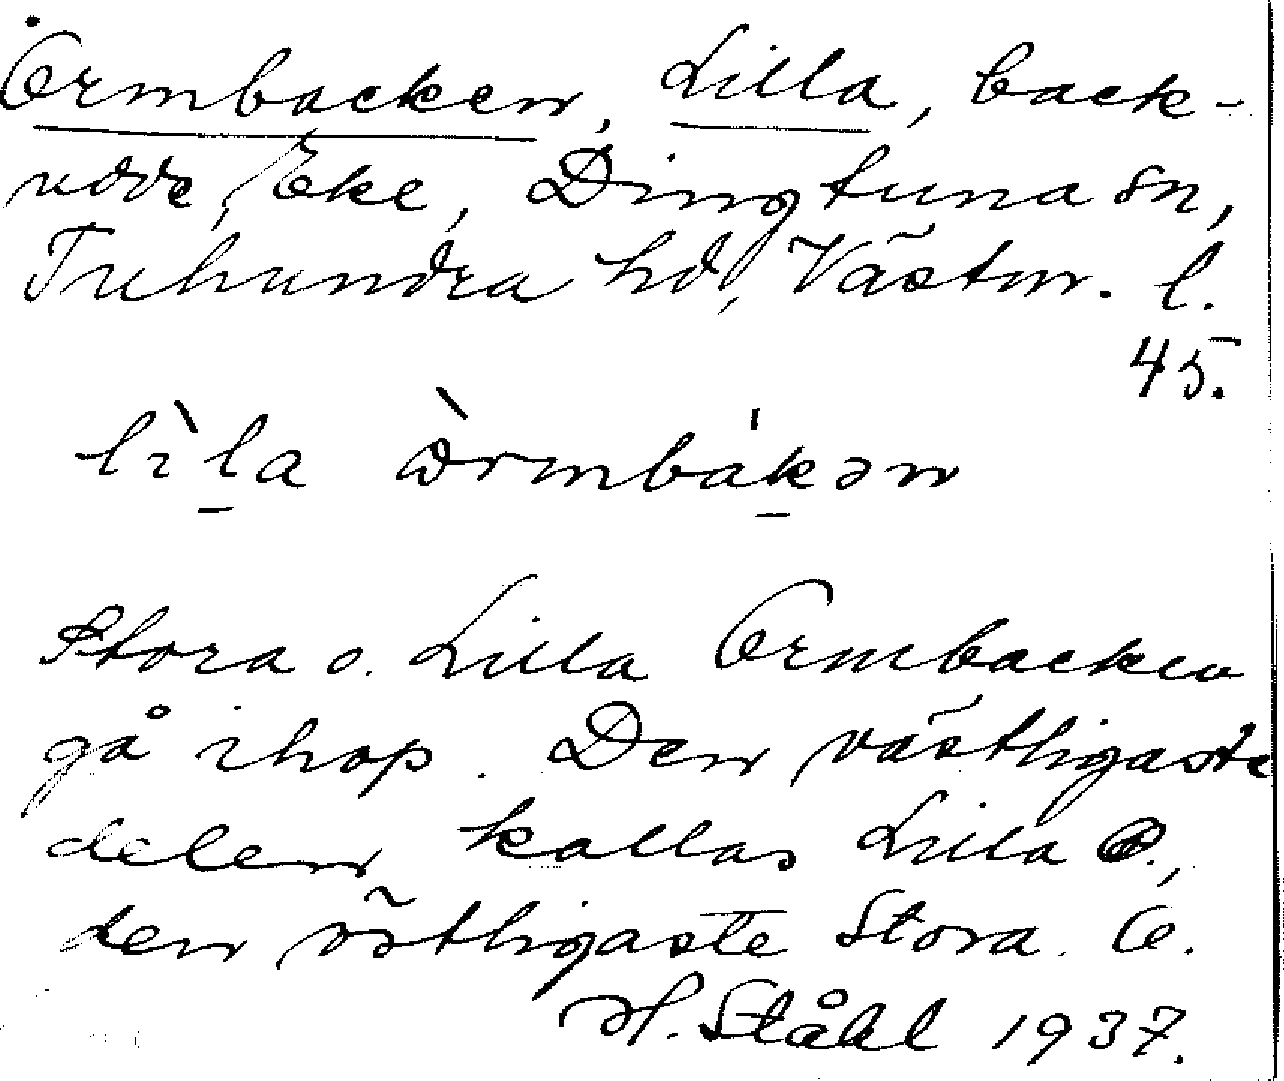 Ormbacken, Lilla, back-
udde, Eke, Dingtuna sn,
Tuhundra hd, Västm. l.
45.
lìla òrmbákən
Stora o. Lilla Ormbacken
gå ihop. Den västligaste
delen kallas Lilla O.,
den östligaste Stora O.
H. Ståhl 1937.